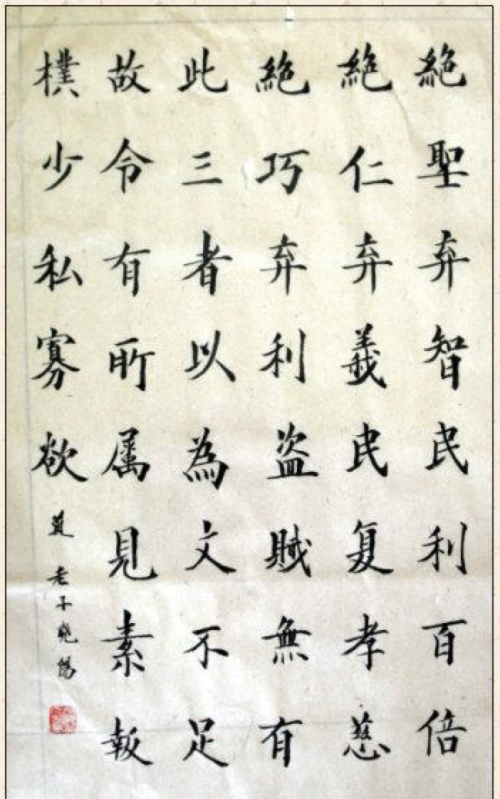 絶聖弃智民利百倍
絶仁弃義民复孝慈
絶巧弃利盗賊無有
此三者以為文不足
故令有所属見素報
樸少私寡欲
老子晓